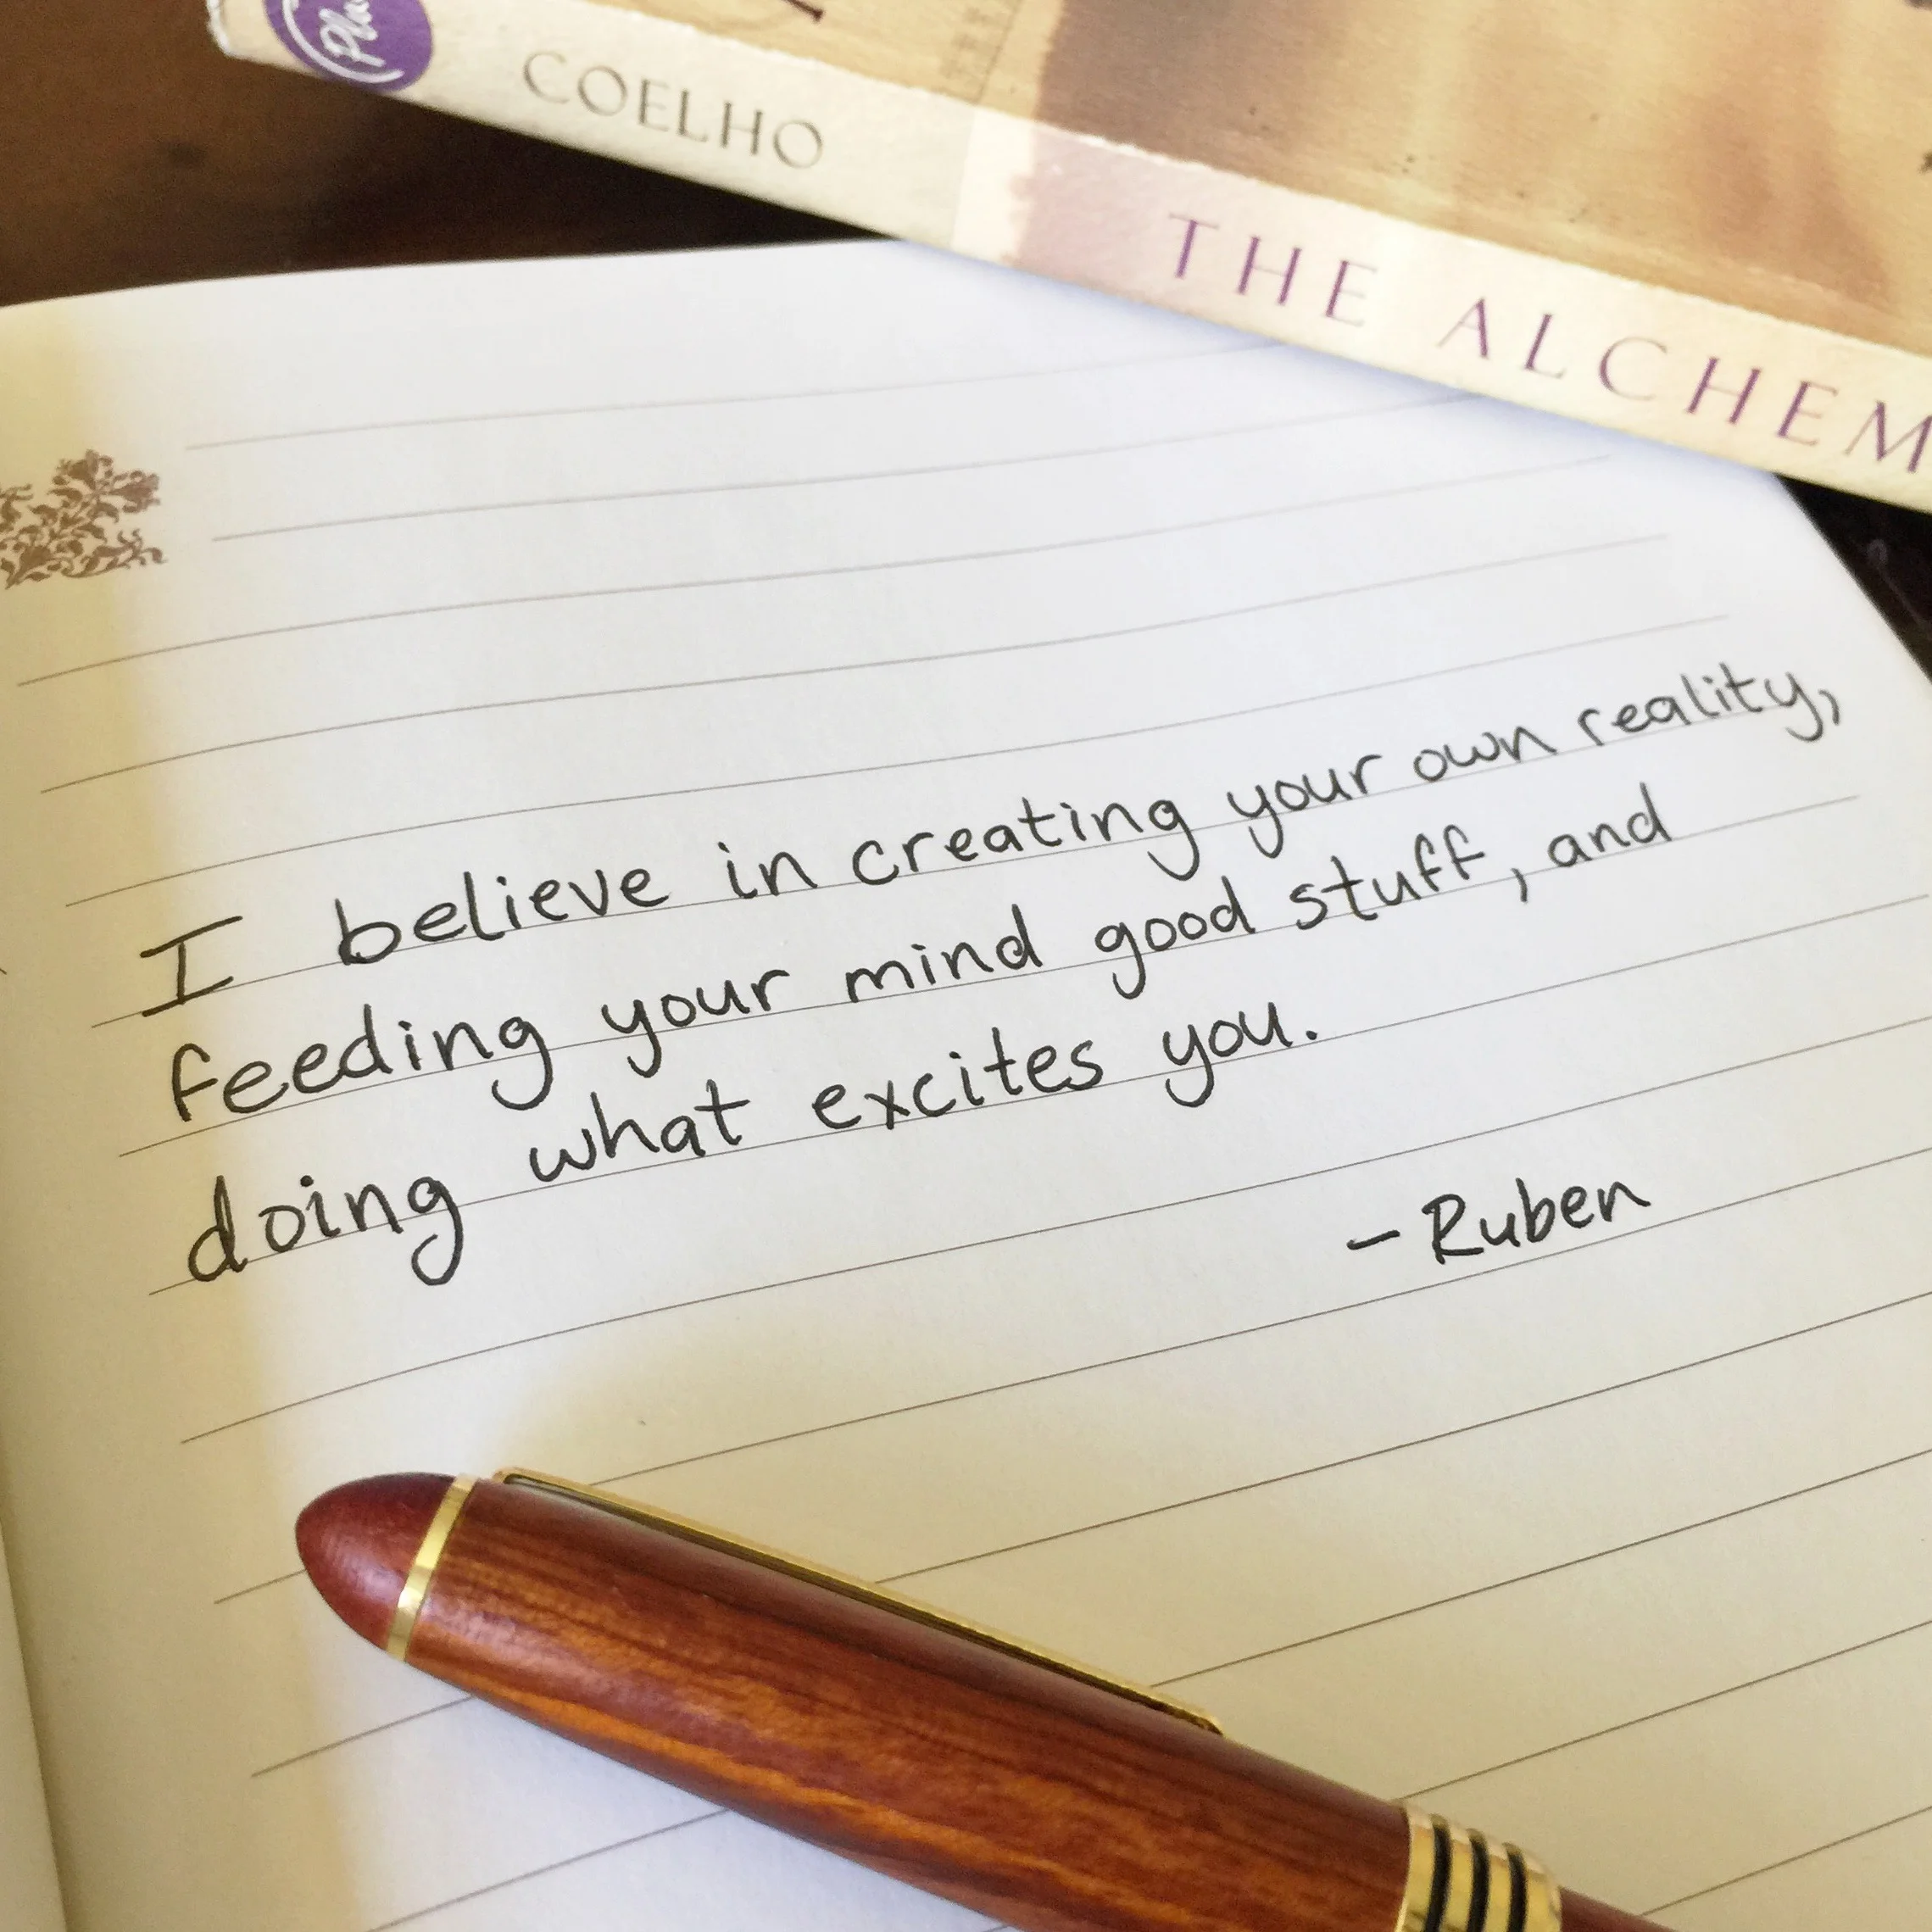 COELHO
THE ALCHEM
I believe in creating your own reality,
feeding your mind good stuff, and
doing what excites you.
- Ruben